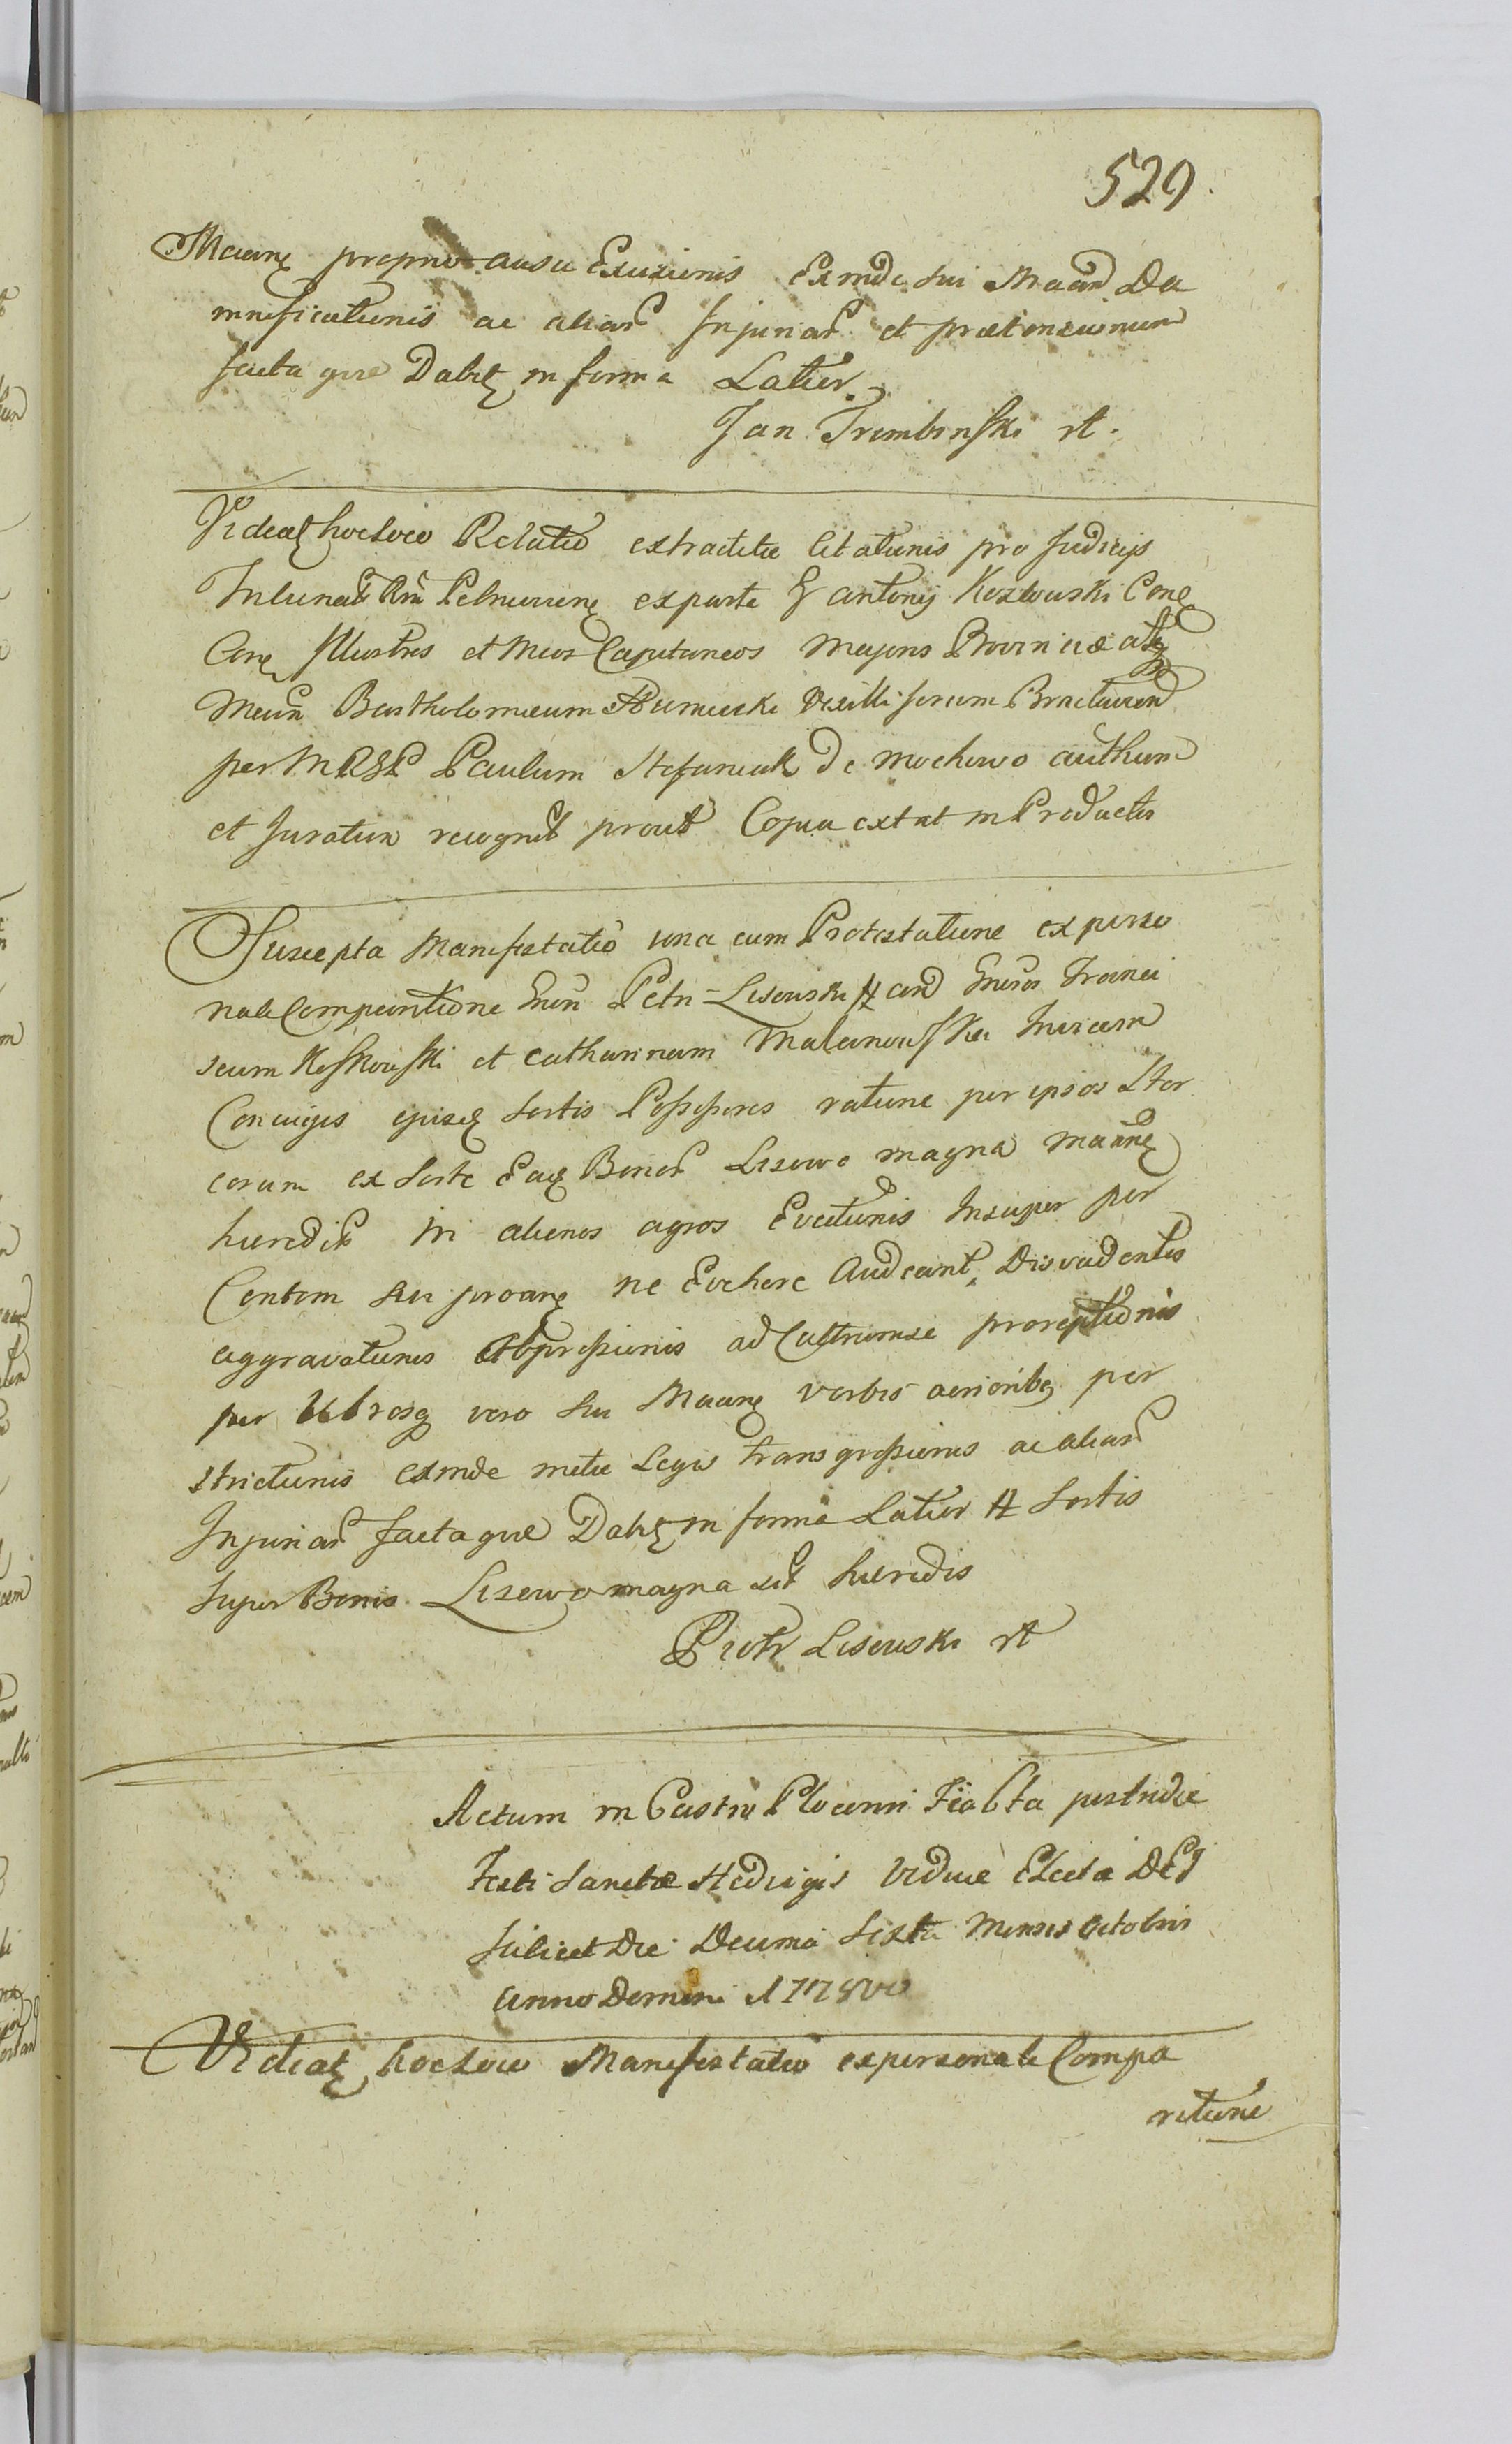 529.
Maanę proprio ausu Exusionis Exinde sui Maan̄ Da
mnificationis ac aliar̄ Injuriar̄ et prætensionum
facta que Dabitę in forma Latior.
Jan Trembinski rt.
Videatę hocloco Relatio extraditæ Citationis pro Judicijs
exparte G antonij Kozłowski Conę
Conę Illustres et Mcos Capitaneos Majoris Provinciæ atqę
Mcum Bartholomæum Vexilliferum Braclavien
per M R G P Paulum Stefaniak De Mochowo authum
et Juratum recognit prout Copia extat in Productis
Suscepta Manifestatio una cum Protestatione ex perso
nali Comparitione Gnri Petri Lisowski H con Gnros Franci
scum Koskowski et Catharinam Malanowska Invicem
Coniuges ejusdę Sortis Possessores ratione per ipsos Ster
corum ex Sorte Eadę Bonor̄ Lisewo magna Maanę
hæredit in alienos agros Evectionis Insuper per
Centem sui proanę ne Evehere Audeant, Disvadentis
aggravationis Obpressionis ad proreptionis
per Utrosqę vero sui Maanę verbis acrioribę per
strictionis exinde metu Legis transgressionis ac aliar̄
Injuriar̄ facta que Dabitę in forma Latior H Sortis
super Bonis Lisewo magna sit hæredis
Piotr Lisowski rt
Actum in Castro Plocensi Feria 6ta postridie
Festi Sanctæ Hedvigis Viduæ Electæ DEJ
scilicet Die Decima Sexta Mensis Octobris
Anno Domini 177
Videatę hocloco Manifestatio expersonali Compa
ritione